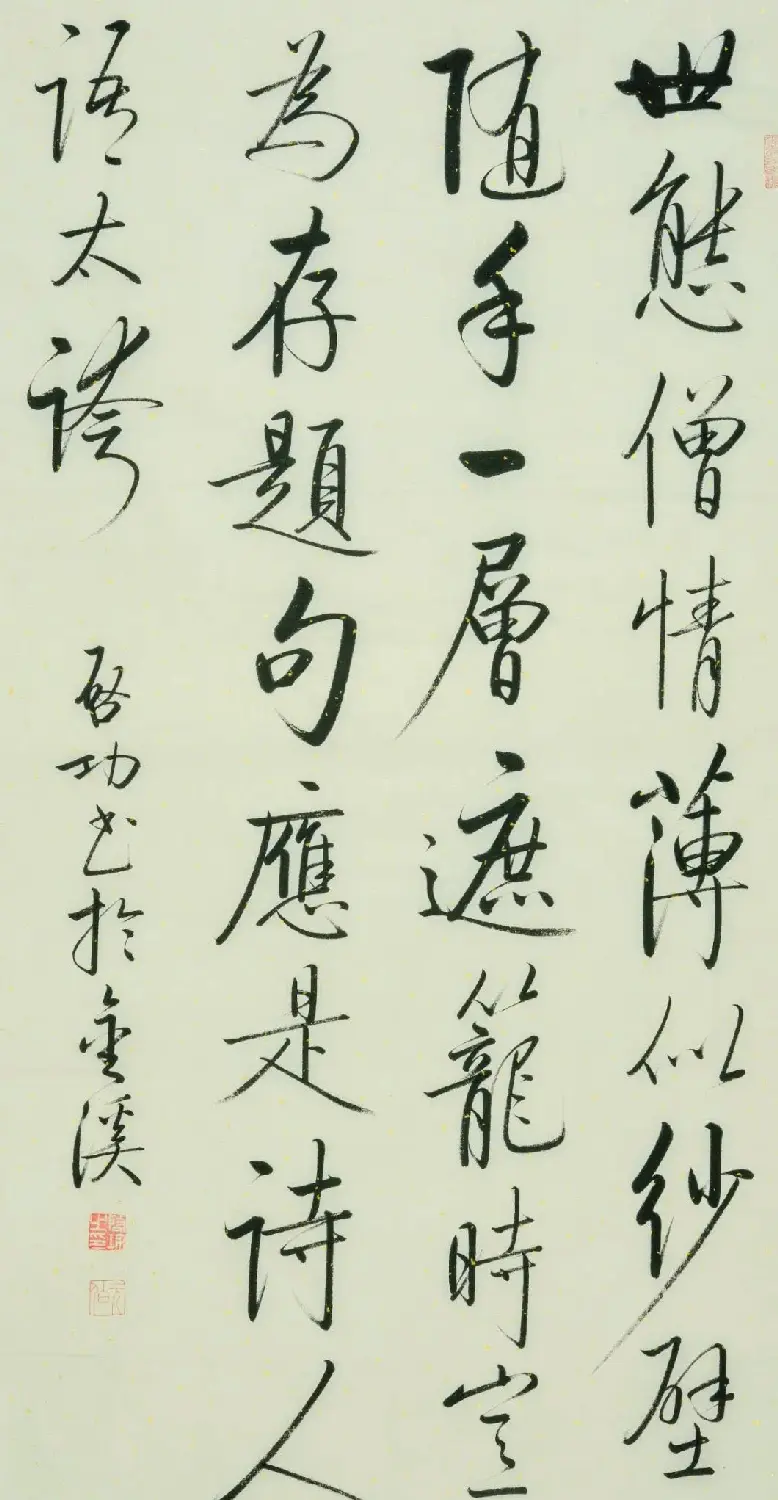 世態僧情薄似紗壁
随手一層遮籠時豈
為存題句應是詩人
語太誇
啓功書於金溪